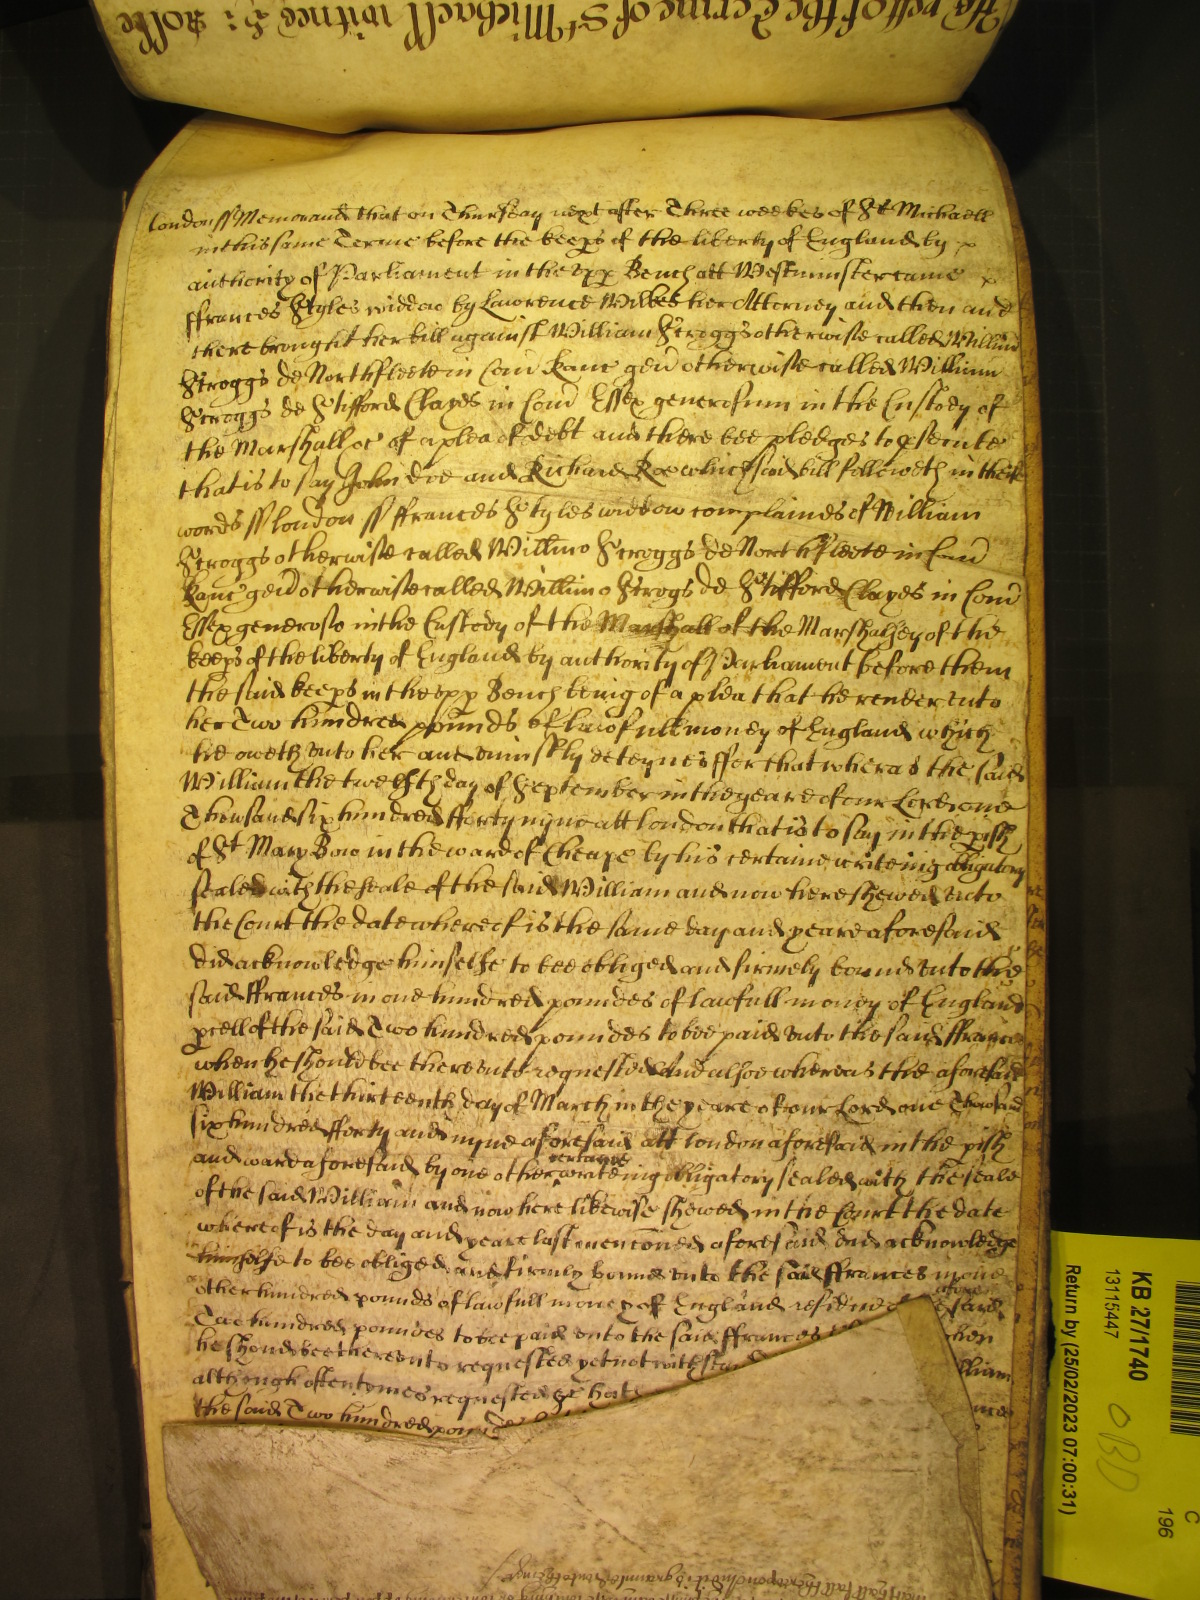 the rest of the Terme of St Michaell witnes: Rolle
London ss Memorand that on Thursday next after Three weekes of St Michaell
in this same Terme before the keeps of the liberty of England by
authority of Parliament in the upp Bench att Westminster came
ffrances Styles widdow by Lawrence Wilkes her Attorney and then and
there brought her bill against William Scroggs otherwise called Willm
Scroggs de Northfleete in Com Kanc gen otherwise called Willimu
Scroggs de Stifford Clayes in Com Essex generosum in the Custody of
the Marshall &c of a plea of debt and there bee pledges to psecute
that is to say John Doe and Richard Roe which said bill followeth in theis
words ss London ss ffrances Styles widdow complaines of William
Scroggs otherwise called Willmo Scroggs de Northfleete in Com
Kanc gen otherwise called Willimo Scrogs de Stifford Clayes in Com
Essex generoso in the Custody of the Marshall of the Marshalsey of the
keeps of the liberty of England by authority of Parliament before them
the said keeps in the upp Bench being of a plea that he render unto
her Two hundred pounds of lawfull money of England which
he oweth unto her and uniustly deteynes ffor that wheras the said
William the twelfth day of September in the yeare of our Lord one
Thowsand six hundred fforty nyne att London that is to say in the pish
of St Mary Bow in the ward of Cheape by his certaine writeing obligatory
sealed with the seale of the said William and now here shewed unto
the Court the date whereof is the same day and yeare aforesaid
did acknowledge himselfe to bee obliged and firmely bound unto the
said ffrances in one hundred poundes of lawfull money of England
pcell of the said Two hundred poundes to bee paid unto the said ffrances
when he should bee thereunto requested And alsoe whereas the aforesaid
William the thirteenth day of March in the yeare of our Lord one Thowsand
six hundred fforty and nyne aforesaid att London aforesaid in the pish
and ward aforesaid by one other certayne writeing obligatory sealed with the seale
of the said William and now here likewise shewed in the Court the date
whereof is the day and yeare last menconed aforesaid did acknowledge
himselfe to bee obliged and firmly bound unto the said ffrances in one
other hundred pounds of lawfull money of England residue of aforesaid
Two hundred poundes to bee paid unto the said ffrances when
he should bee thereunto requested yet notwithstan lliam
although oftentymes requested &c hath nces
the said Two hundred pou
KB 27/1740
13115447
Return by (25/02/2023 07:00:31)
OBD
C
196